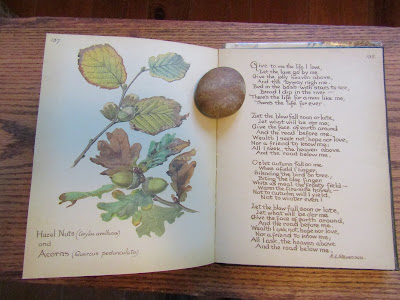 Hazel Nuts (Corylus avellana)
and
Acorns (Quercus pedunculata)
Give to me the life I love,
Let the lave go by me,
Give the jolly heaven above,
And the byeway nigh me.
Bed in the bush with stars to see,
Bread I dip in the river –
There's the life for a man like me,
There's the life for ever.
Let the blow fall soon or late,
Let what will be o'er me;
Give the face of earth around
And the road before me.
Wealth I seek not, hope nor love,
Nor a friend to know me;
All I seek, the heaven above
And the road below me.
Or let autumn fall on me
Where afield I linger,
Silencing the bird on tree,
Biting the blue finger.
White as meal the frosty field –
Warm the fireside haven –
Not to autumn will I yield,
Not to winter even!
Let the blow fall soon or late,
Let what will be o'er me
Give the face of earth around,
And the road before me.
Wealth I ask not, hope nor love,
Nor a friend to know me;
All I ask, the heaven above
And the road below me.